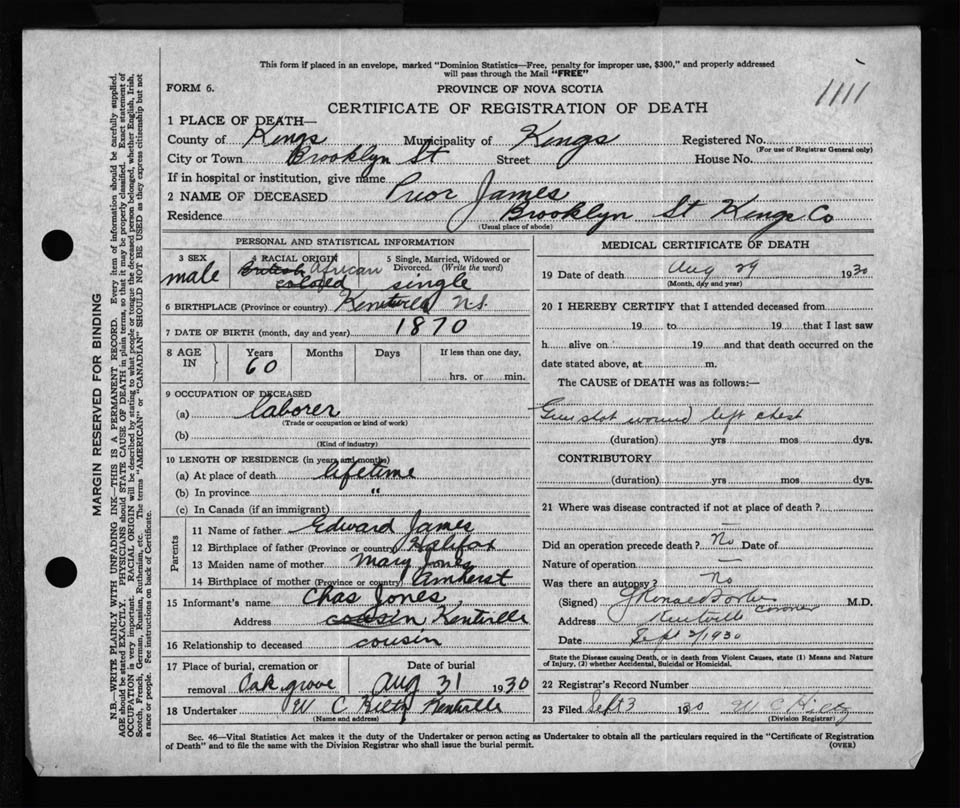 This form if placed in an envelope, marked "Dominion Statistics—Free, penalty for improper use, $300," and properly addressed
will pass through the Mail "FREE"
FORM 6.
PROVINCE OF NOVA SCOTIA
1111
CERTIFICATE OF REGISTRATION OF DEATH
1 PLACE OF DEATH—
County of Kings Municipality of Kings Registered No.
(For use of Registrar General only)
City or Town Brooklyn St Street House No.
If in hospital or institution, give name
2 NAME OF DECEASED Prior James
Residence Brooklyn St Kings Co
(Usual place of abode)
PERSONAL AND STATISTICAL INFORMATION
3 SEX
male
4 RACIAL ORIGIN
British African
colored
5 Single, Married, Widowed or
Divorced. (Write the word)
single
6 BIRTHPLACE (Province or country) Kentville N.S.
7 DATE OF BIRTH (month, day and year) 1870
8 AGE IN
Years Months Days If less than one day,
60 hrs. or min.
9 OCCUPATION OF DECEASED
(a) laborer
(Trade or occupation or kind of work)
(b)
(Kind of industry)
10 LENGTH OF RESIDENCE (in years and months)
(a) At place of death lifetime
(b) In province "
(c) In Canada (if an immigrant)
Parents
11 Name of father Edward James
12 Birthplace of father (Province or country) Halifax
13 Maiden name of mother Mary Jones
14 Birthplace of mother (Province or country) Amherst
15 Informant's name Chas Jones
Address cousin Kentville
16 Relationship to deceased cousin
17 Place of burial, cremation or
removal Oak grove
Date of burial
Aug 31 1930
18 Undertaker W C Hiltz Kentville
(Name and address)
MEDICAL CERTIFICATE OF DEATH
19 Date of death Aug 29 1930
(Month, day and year)
20 I HEREBY CERTIFY that I attended deceased from
19 to 19 that I last saw
h alive on 19 and that death occurred on the
date stated above, at m.
The CAUSE of DEATH was as follows:—
Gun shot wound left chest
(duration) yrs mos dys.
CONTRIBUTORY
(duration) yrs mos dys.
21 Where was disease contracted if not at place of death?
Did an operation precede death? No Date of
Nature of operation —
Was there an autopsy? No
(Signed) M.D.
coroner
Address Kentville
Date Sept 2/1930
State the Disease causing Death, or in death from Violent Causes, state (1) Means and Nature
of Injury, (2) whether Accidental, Suicidal or Homicidal.
22 Registrar's Record Number
23 Filed Sept 3 1930 W C Hiltz
(Division Registrar)
Sec. 46—Vital Statistics Act makes it the duty of the Undertaker or person acting as Undertaker to obtain all the particulars required in the "Certificate of Registration
of Death" and to file the same with the Division Registrar who shall issue the burial permit.
(OVER)
MARGIN RESERVED FOR BINDING
N.B.—WRITE PLAINLY WITH UNFADING INK—THIS IS A PERMANENT RECORD. Every item of information should be carefully supplied.
AGE should be stated EXACTLY. PHYSICIANS should STATE CAUSE OF DEATH in plain terms, so that it may be properly classified. Exact statement of
OCCUPATION is very important. RACIAL ORIGIN will be described by stating to what people or tongue the deceased person belonged, whether English, Irish,
Scotch, French, German, Russian, Ruthenian, etc. The terms "AMERICAN" or "CANADIAN" SHOULD NOT BE USED as they express citizenship but not
a race or people. Fee instructions on back of Certificate.